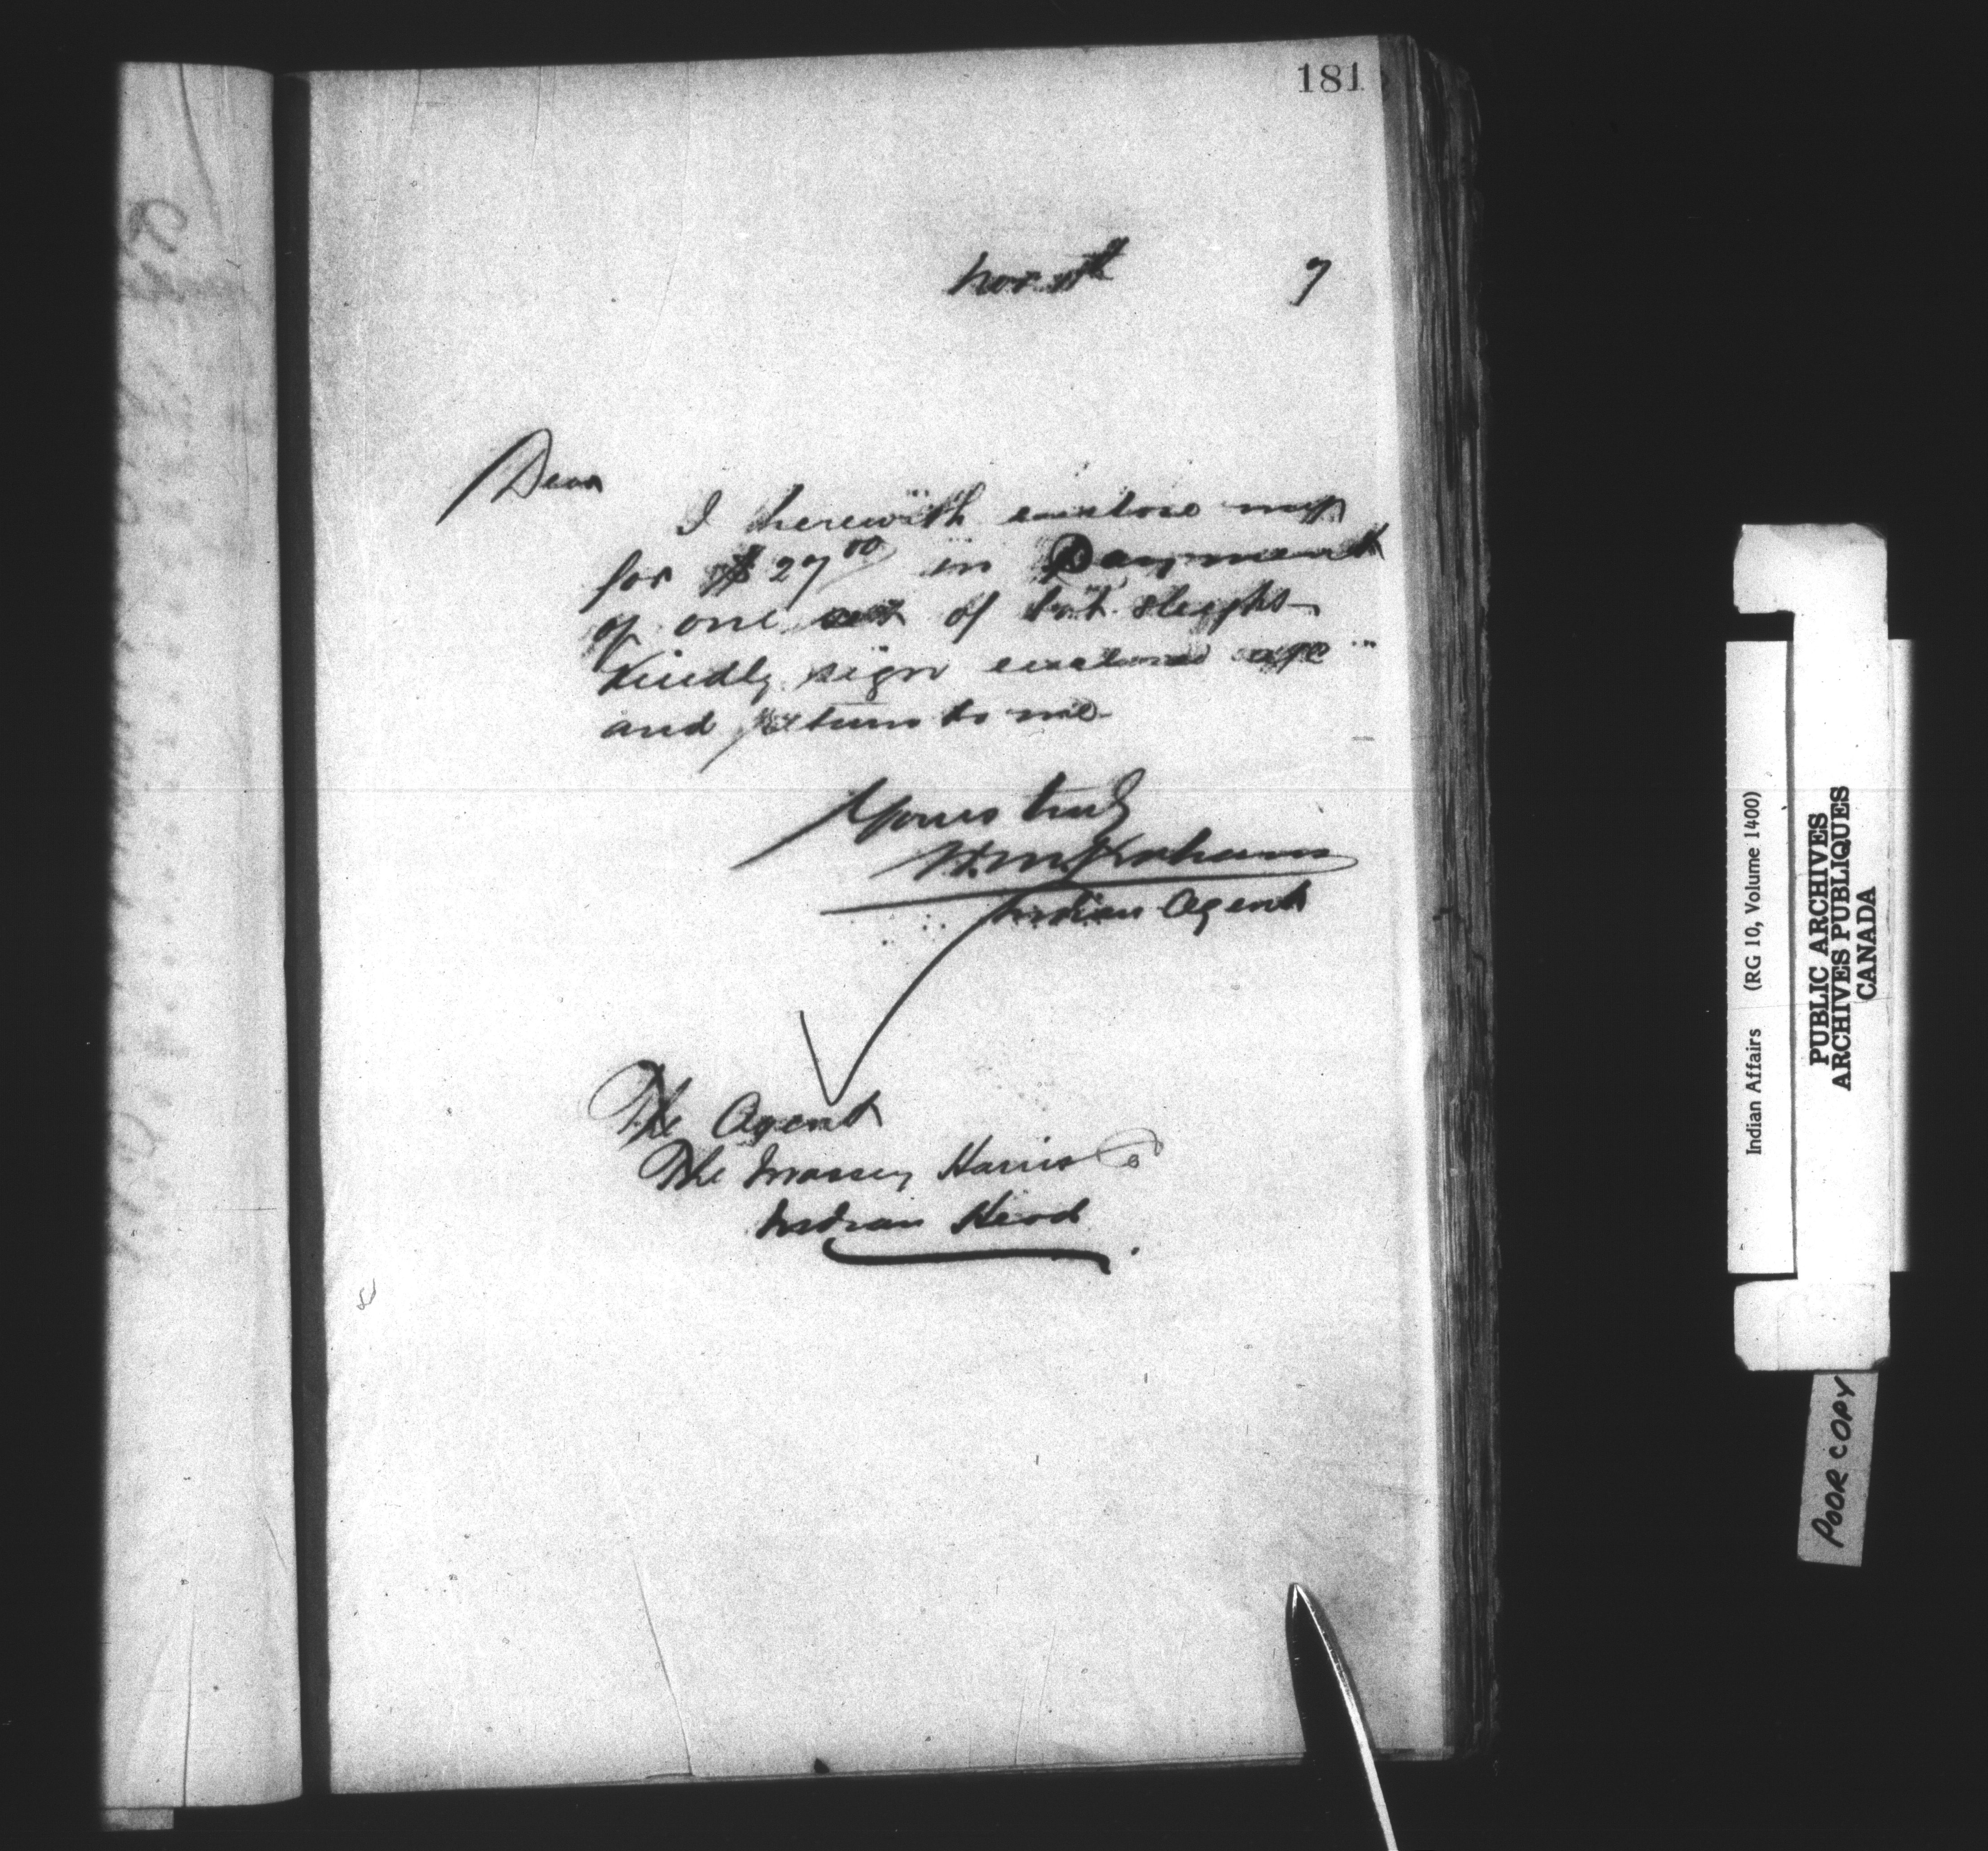 181
Nov 11th 7
Dear
I herewith enclose my
for $27.00 in Payment
of one set of bob sleighs
Kindly sign enclosed
and return to me
Yours truly
W. M. Graham
Indian Agent
The Agent
The Massey Harris Co
Indian Head
Indian Affairs (RG 10, Volume 1400)
PUBLIC ARCHIVES
ARCHIVES PUBLIQUES
CANADA
POOR COPY